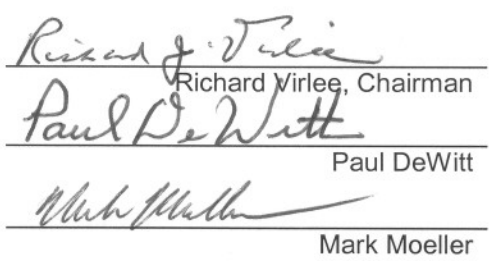 Richard J. Virlee
Richard Virlee, Chairman
Paul DeWitt
Paul DeWitt
Mark Moeller
Mark Moeller